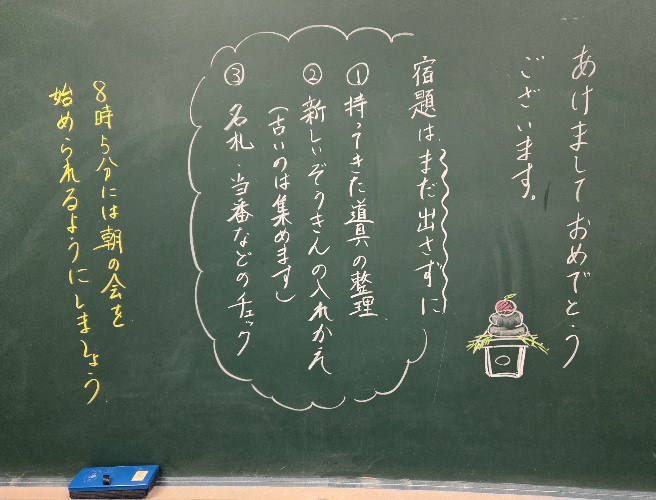 あけまして おめでとう
ございます。
宿題は、まだ出さずに
① 持ってきた道具の整理
② 新しいぞうきんの入れかえ
(古いのは集めます)
③ 名札、当番などのチェック
8時5分には朝の会を
始められるようにしましょう